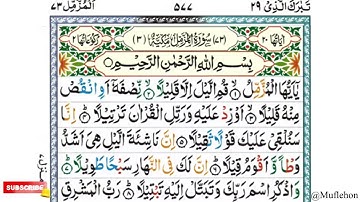 تَبٰرَكَ الَّذِىْ ٢٩
٥٧٧
اَلْمُزَّمِّل ٧٣
اٰيَاتُهَا ٢٠
(٧٣) سُوْرَةُ الْمُزَّمِّلِ مَكِّيَّةٌ (٣)
رُكُوْعَاتُهَا ٢
بِسْمِ اللّٰهِ الرَّحْمٰنِ الرَّحِيْمِ
يٰٓاَيُّهَا الْمُزَّمِّلُ ۙ١ قُمِ الَّيْلَ اِلَّا قَلِيْلًا ۙ٢ نِّصْفَهٗٓ اَوِ انْقُصْ
مِنْهُ قَلِيْلًا ۙ٣ اَوْ زِدْ عَلَيْهِ وَرَتِّلِ الْقُرْاٰنَ تَرْتِيْلًا ؕ٤ اِنَّا
سَنُلْقِىْ عَلَيْكَ قَوْلًا ثَقِيْلًا ٥ اِنَّ نَاشِئَةَ الَّيْلِ هِىَ اَشَدُّ
وَطْاً وَّاَقْوَمُ قِيْلًا ؕ٦ اِنَّ لَكَ فِى النَّهَارِ سَبْحًا طَوِيْلًا ؕ٧
وَاذْكُرِ اسْمَ رَبِّكَ وَتَبَتَّلْ اِلَيْهِ تَبْتِيْلًا ؕ٨ رَبُّ الْمَشْرِقِ
SUBSCRIBE
@Muflehon